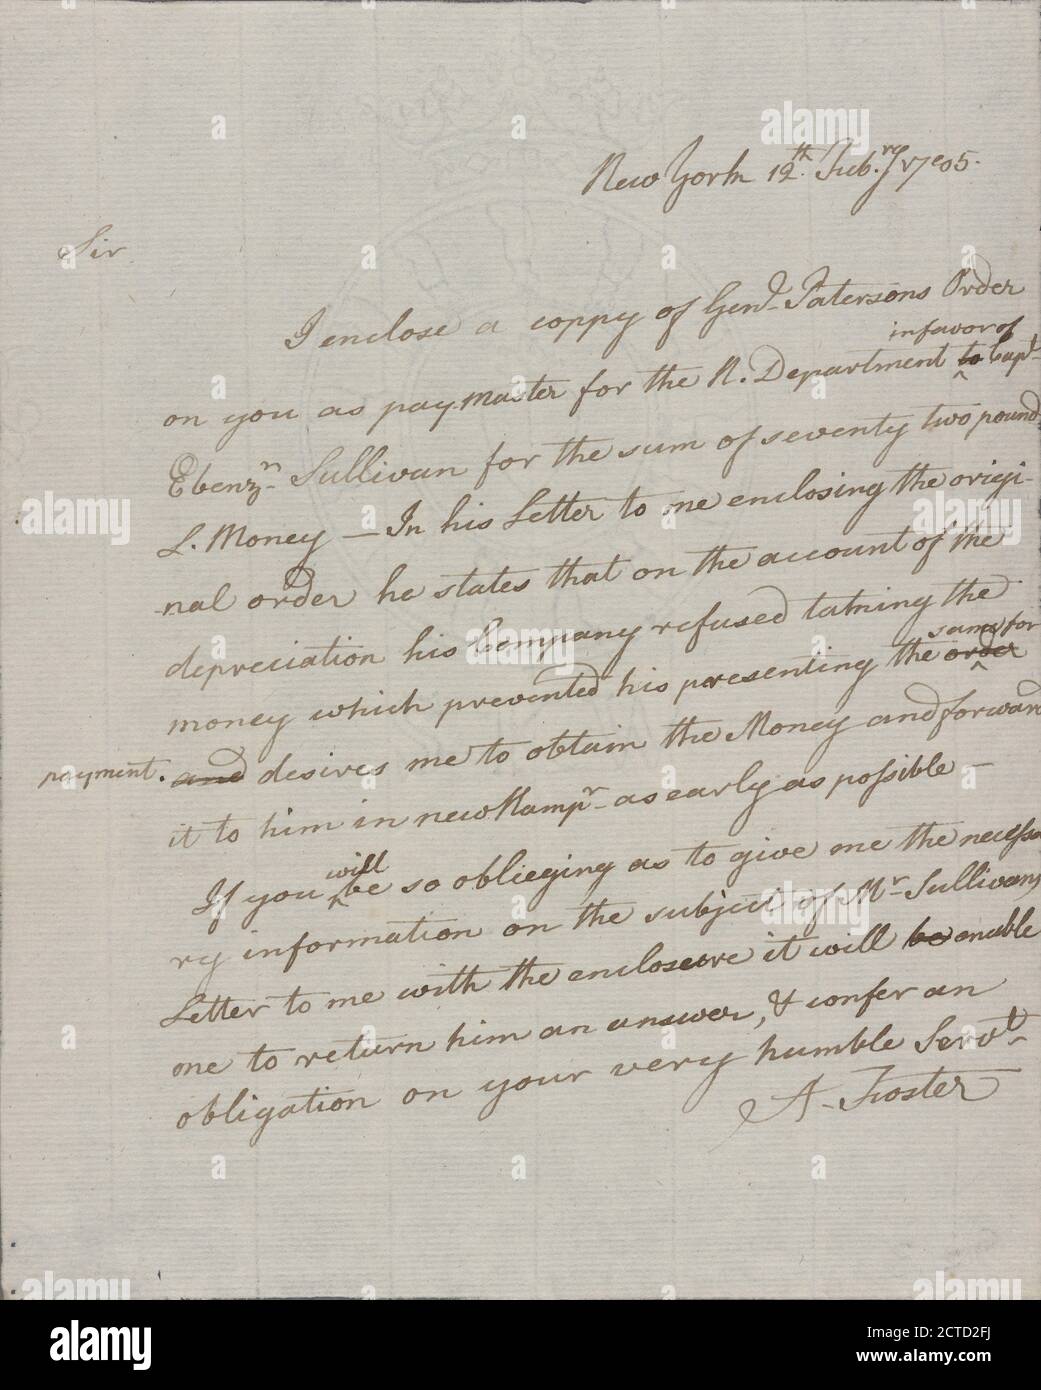 New York 12th. Feb.ry 1785.
Sir
I enclose a coppy of Genl. Patersons Order
in favor of
on you as paymaster for the N. Department to ^ Capt.
Ebenzn. Sullivan for the sum of seventy two pound
L. Money — In his Letter to me enclosing the origi-
-nal order he states that on the account of the
depreciation his Company refused tatning the
same for
money which prevented his presenting the order ^
payment. and desires me to obtain the Money and forward
it to him in new Hampr. as early as possible —
will
If you ^ be so oblieging as to give me the necessa
ry information on the subject of Mr. Sullivans
Letter to me with the encloseure it will be enable
me to return him an answer, & confer an
obligation on your very humble Servt.
A. Foster
alamy
Image ID: 2CTD2FJ
www.alamy.com